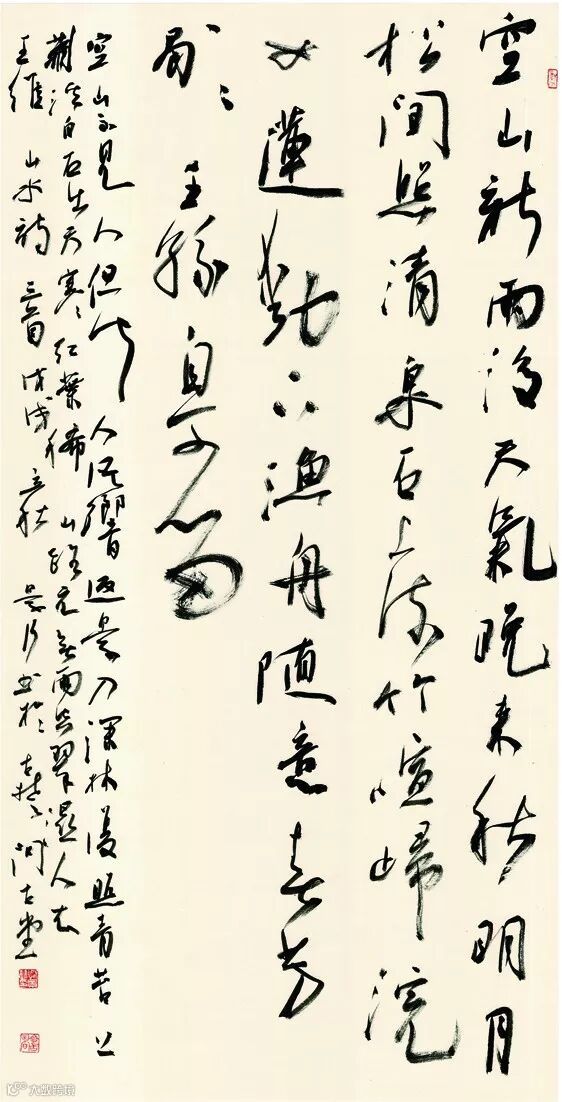 空山新雨後天氣晚来秋明月
松間照清泉石上流竹喧歸浣
女蓮動下漁舟随意春芳
歇王孫自可留
空山不見人但聞人語響返景入深林復照青苔上
荊溪白石出天寒红葉稀山路元無雨空翠濕人衣
王维山水詩三首戊戌立秋书於古楚问古堂
大数跨境